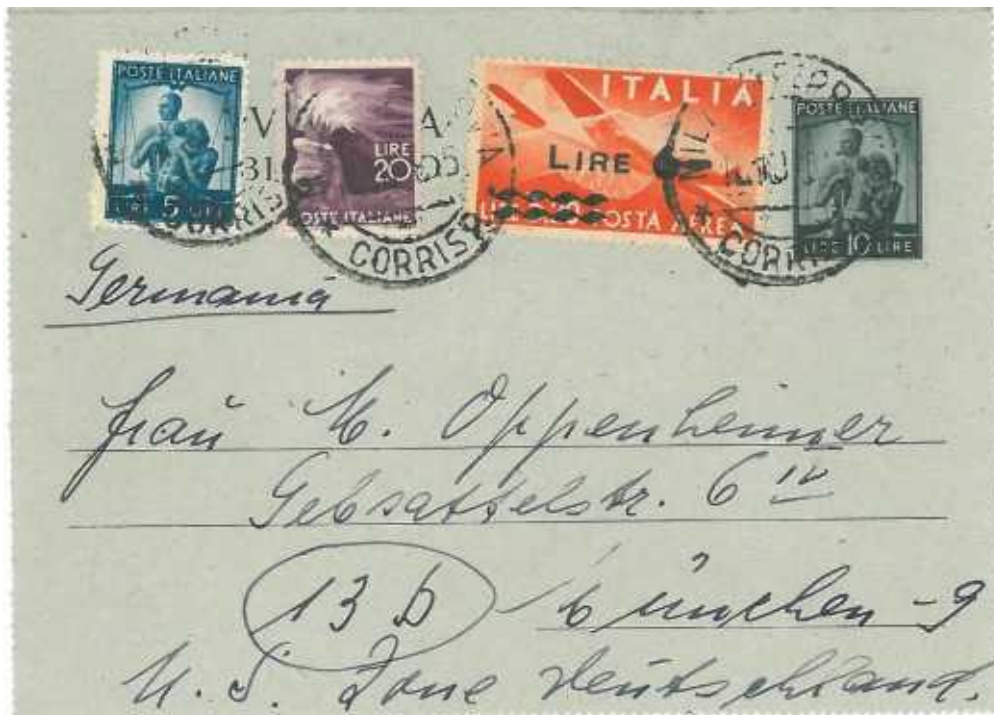 POSTE ITALIANE
5
LIRE
20
POSTE ITALIANE
ITALIA
LIRE
POSTA AEREA
POSTE ITALIANE
LIRE 10 LIRE
CORRISP
CORRISP
Germania
Frau M. Oppenheimer
Gebsattelstr. 6 IV
13 b München-9
U.S. Zone Deutschland.